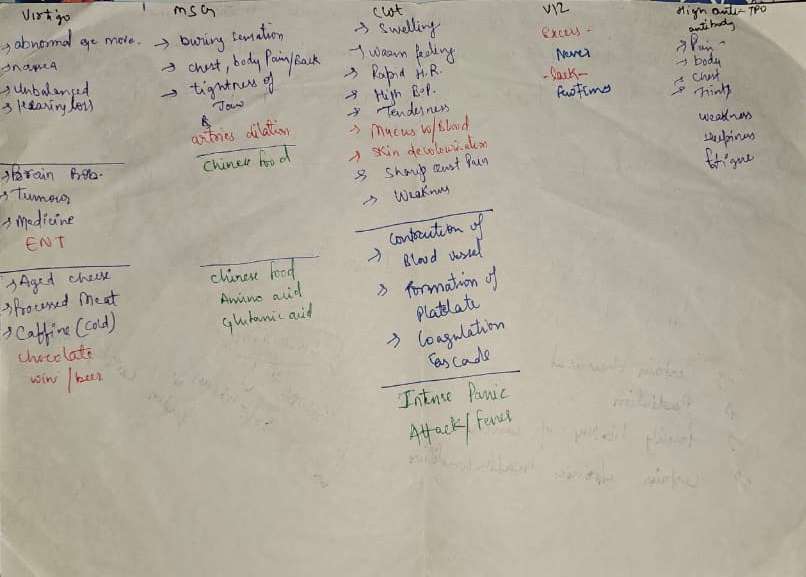 Virtigo
→ abnormal eye move.
→ nausea
→ Unbalanced
→ Hearing loss
→ Brain Prb.
→ Tumours
→ Medicine
ENT
→ Aged cheese
→ Processed Meat
→ Caffine (cold)
chocolate
win / beer
MSG
→ Buring sensation
→ chest, body Pain/Back
→ tightness of
Jaw
&
artries dilation
Chinese food
chinese food
Amino acid
Glutamic acid
Clot
→ Swelling
→ Warm feeling
→ Rapid H.R.
→ High B.P.
→ Tenderness
→ Mucus w/Blood
→ Skin decolourination
→ Sharp chest Pain
→ Weakness
→ Contruction of
Blood vessel
→ Formation of
Platelate
→ Coagulation
Cascade
Intense Panic
Attack / Fever
V12
Excess -
Never
- lack -
few times
High anti-TPO
antibody
→ Pain -
→ body
→ Chest
→ Joints
weakness
sleepiness
fatigue